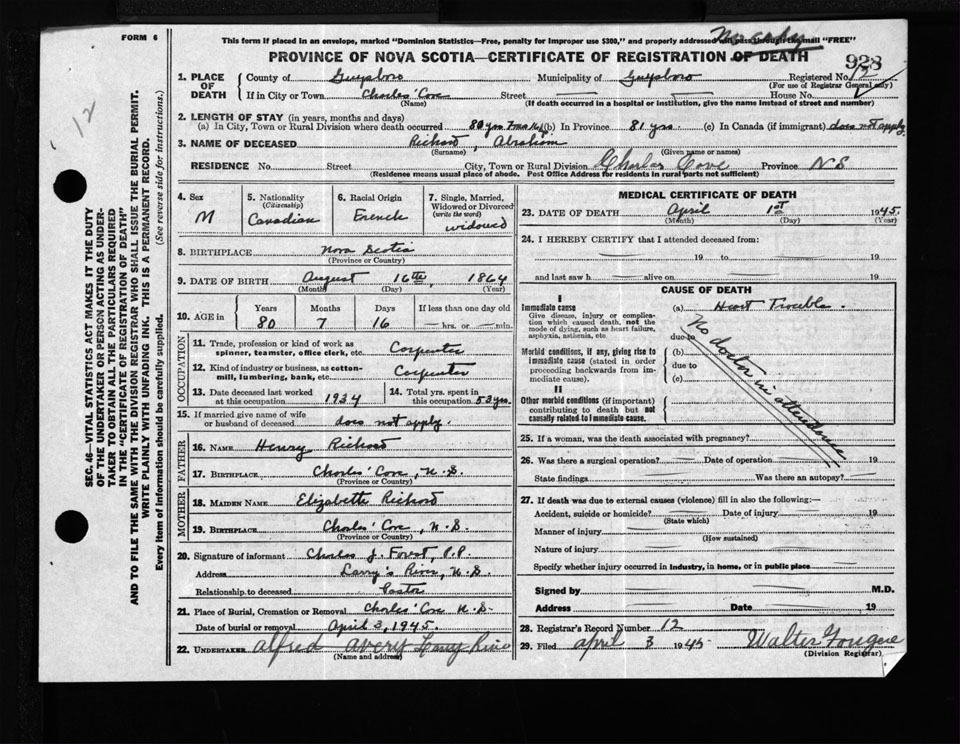 FORM 6
This form if placed in an envelope, marked "Dominion Statistics—Free, penalty for improper use $300," and properly addressed will pass through the mail "FREE"
PROVINCE OF NOVA SCOTIA—CERTIFICATE OF REGISTRATION OF DEATH
928
12
1. PLACE OF DEATH
County of Guysboro Municipality of Guysboro Registered No. 12
(For use of Registrar General only)
If in City or Town Charles' Cove Street House No.
(Name) (If death occurred in a hospital or institution, give the name instead of street and number)
2. LENGTH OF STAY (in years, months and days)
(a) In City, Town or Rural Division where death occurred 80 yrs 7 mos (b) In Province 81 yrs. (c) In Canada (if immigrant) does not apply
3. NAME OF DECEASED Richard, Abraham
(Surname) (Given name or names)
RESIDENCE No. Street City, Town or Rural Division Charles Cove Province N S
(Residence means usual place of abode. Post Office Address for residents in rural parts not sufficient)
4. Sex M
5. Nationality (Citizenship) Canadian
6. Racial Origin French
7. Single, Married, Widowed or Divorced (write the word) widowed
8. BIRTHPLACE Nova Scotia
(Province or Country)
9. DATE OF BIRTH August 16th, 1864
(Month) (Day) (Year)
10. AGE in Years Months Days If less than one day old
80 7 16 — hrs. or — min.
OCCUPATION
11. Trade, profession or kind of work as spinner, teamster, office clerk, etc. Carpenter
12. Kind of industry or business, as cotton-mill, lumbering, bank, etc. Carpenter
13. Date deceased last worked at this occupation 1934
14. Total yrs. spent in this occupation 53 yrs.
15. If married give name of wife or husband of deceased does not apply.
FATHER
16. NAME Henry Richard
17. BIRTHPLACE Charles' Cove, N.S.
(Province or Country)
MOTHER
18. MAIDEN NAME Elizabeth Richard
19. BIRTHPLACE Charles' Cove, N.S.
(Province or Country)
20. Signature of informant Charles J. Forest, P.P.
Address Larry's River, N.S.
Relationship to deceased Pastor
21. Place of Burial, Cremation or Removal Charles' Cove N.S.
Date of burial or removal April 3, 1945.
22. UNDERTAKER Alfred Avery Larry River
(Name and address)
MEDICAL CERTIFICATE OF DEATH
23. DATE OF DEATH April 1st 1945.
(Month) (Day) (Year)
24. I HEREBY CERTIFY that I attended deceased from:
19 to 19
and last saw h alive on 19
CAUSE OF DEATH
I
Immediate cause
Give disease, injury or complication which caused death, not the mode of dying, such as heart failure, asphyxia, asthenia, etc
(a) Heart Trouble.
due to
Morbid conditions, if any, giving rise to immediate cause (stated in order proceeding backwards from immediate cause).
(b)
due to
(c)
II
Other morbid conditions (if important) contributing to death but not causally related to immediate cause.
No doctor in attendance
25. If a woman, was the death associated with pregnancy?
26. Was there a surgical operation? Date of operation 19
State findings Was there an autopsy?
27. If death was due to external causes (violence) fill in also the following:—
Accident, suicide or homicide? Date of injury 19
(State which)
Manner of injury
(How sustained)
Nature of injury
Specify whether injury occurred in industry, in home, or in public place
Signed by M.D.
Address Date 19
28. Registrar's Record Number 12
29. Filed April 3 1945 Walter Fougere
(Division Registrar)
SEC. 46—VITAL STATISTICS ACT MAKES IT THE DUTY
OF THE UNDERTAKER OR PERSON ACTING AS UNDER-
TAKER TO OBTAIN ALL THE PARTICULARS REQUIRED
IN THE "CERTIFICATE OF REGISTRATION OF DEATH"
AND TO FILE THE SAME WITH THE DIVISION REGISTRAR WHO SHALL ISSUE THE BURIAL PERMIT.
WRITE PLAINLY WITH UNFADING INK. THIS IS A PERMANENT RECORD.
Every item of information should be carefully supplied. (See reverse side for instructions.)